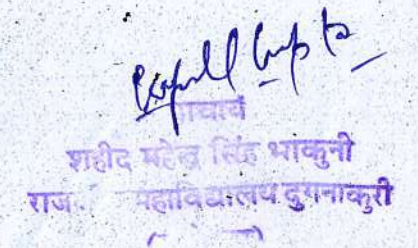 Gupta
प्राचार्य
शहीद महेन्द्र सिंह भाकुनी
राज महाविद्यालय दुगनाकुरी